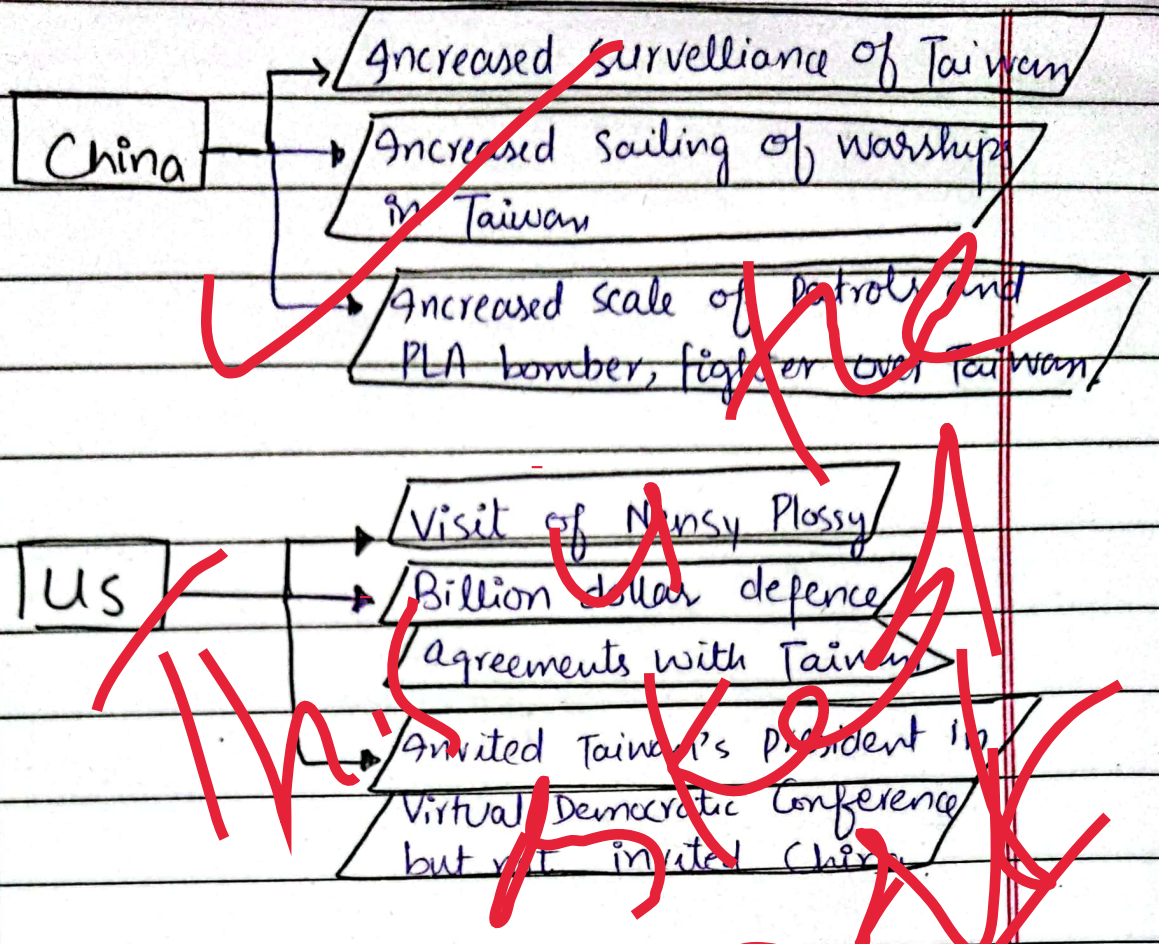 Increased survelliance of Taiwan
China
Increased Sailing of warship
in Taiwan
Increased scale of patrols and
PLA bomber, fighter over Taiwan
Visit of Nansy Plossy
US
Billion dollar defence
agreements with Taiwan
Invited Taiwan's president in
Virtual Democratic Conference
but not invited China